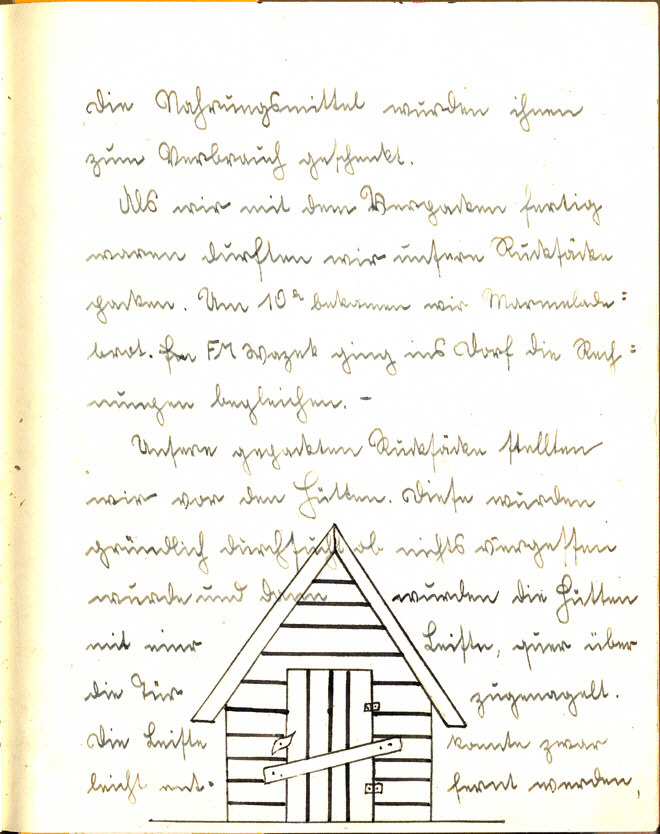 die Nahrungsmittel wurden ihnen
zum Verbrauch geschenkt.
Als wir mit dem Verpacken fertig
waren durften wir unsere Rucksäcke
packen. Um 10ʰ bekamen wir Marmelade=
brot. FM Wazek ging ins Dorf die Rech=
nungen begleichen. –
Unsere gepackten Rucksäcke stellten
wir vor den Hütten. Diese wurden
gründlich durchsucht ob nichts vergessen
wurde und dann wurden die Hütten
mit einer Leiste, quer über
die Tür zugenagelt.
Die Leiste konnte zwar
leicht ent- fernt werden,